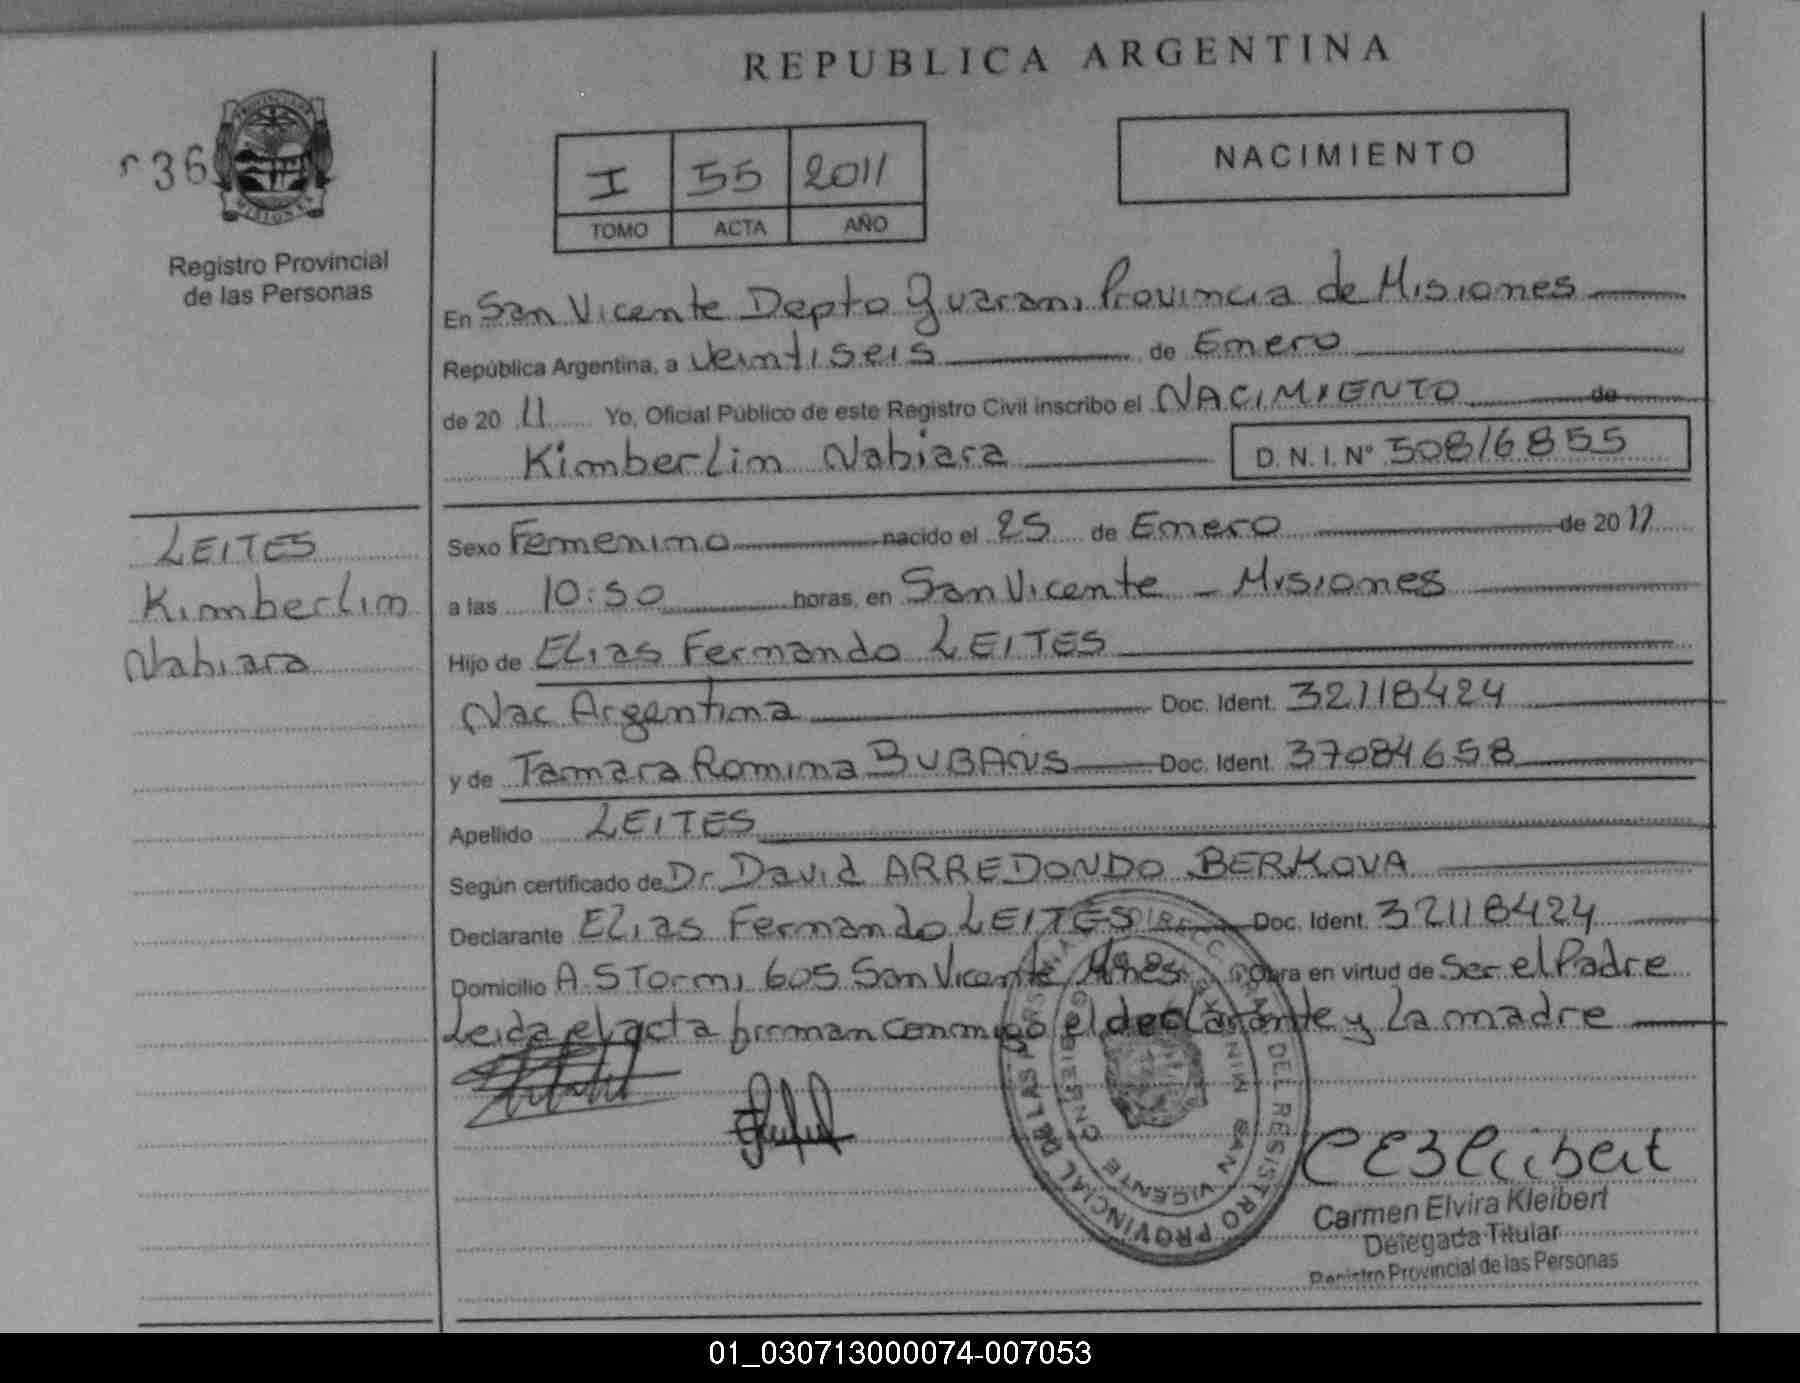 REPUBLICA ARGENTINA
36
PROVINCIA DE MISIONES
Registro Provincial
de las Personas
I 55 2011
TOMO ACTA AÑO
NACIMIENTO
En San Vicente Depto Guarani Provincia de Misiones
República Argentina, a veintiseis de Enero
de 2011 Yo, Oficial Público de este Registro Civil inscribo el NACIMIENTO de
Kimberlin Nahiara D.N.I. Nº 50816855
LEITES
Kimberlin
Nahiara
Sexo Femenino nacido el 25 de Enero de 2011
a las 10:50 horas, en San Vicente - Misiones
Hijo de Elias Fernando LEITES
Nac Argentina Doc. Ident. 32118424
y de Tamara Romina BUBANS Doc. Ident. 37084658
Apellido LEITES
Según certificado de Dr David ARREDONDO BERKOVA
Declarante Elias Fernando LEITES Doc. Ident. 32118424
Domicilio A. Storni 605 San Vicente Mnes. Obra en virtud de Ser el Padre
Leida el acta firman conmigo el declarante y La madre
REGISTRO PROVINCIAL DE LAS
SAN VICENTE
Carmen Elvira Kleibert
Delegada Titular
Registro Provincial de las Personas
01_030713000074-007053